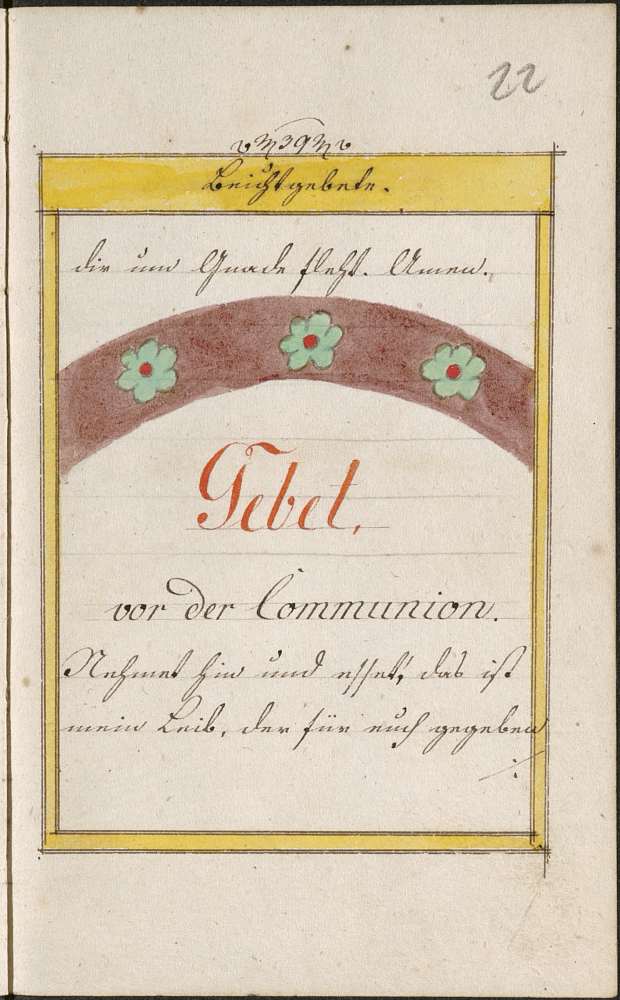 22
39
Beichtgebete.
dir um Gnade fleht. Amen.
Gebet,
vor der Communion.
Nehmet hin und esset, das ist
mein Leib, der für euch gegeben